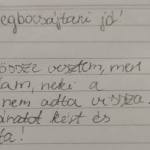 egbocsájtani jó!
össze vesztem, mert
tam, neki a
nem adta vissza.
ánatot kért és
ta!